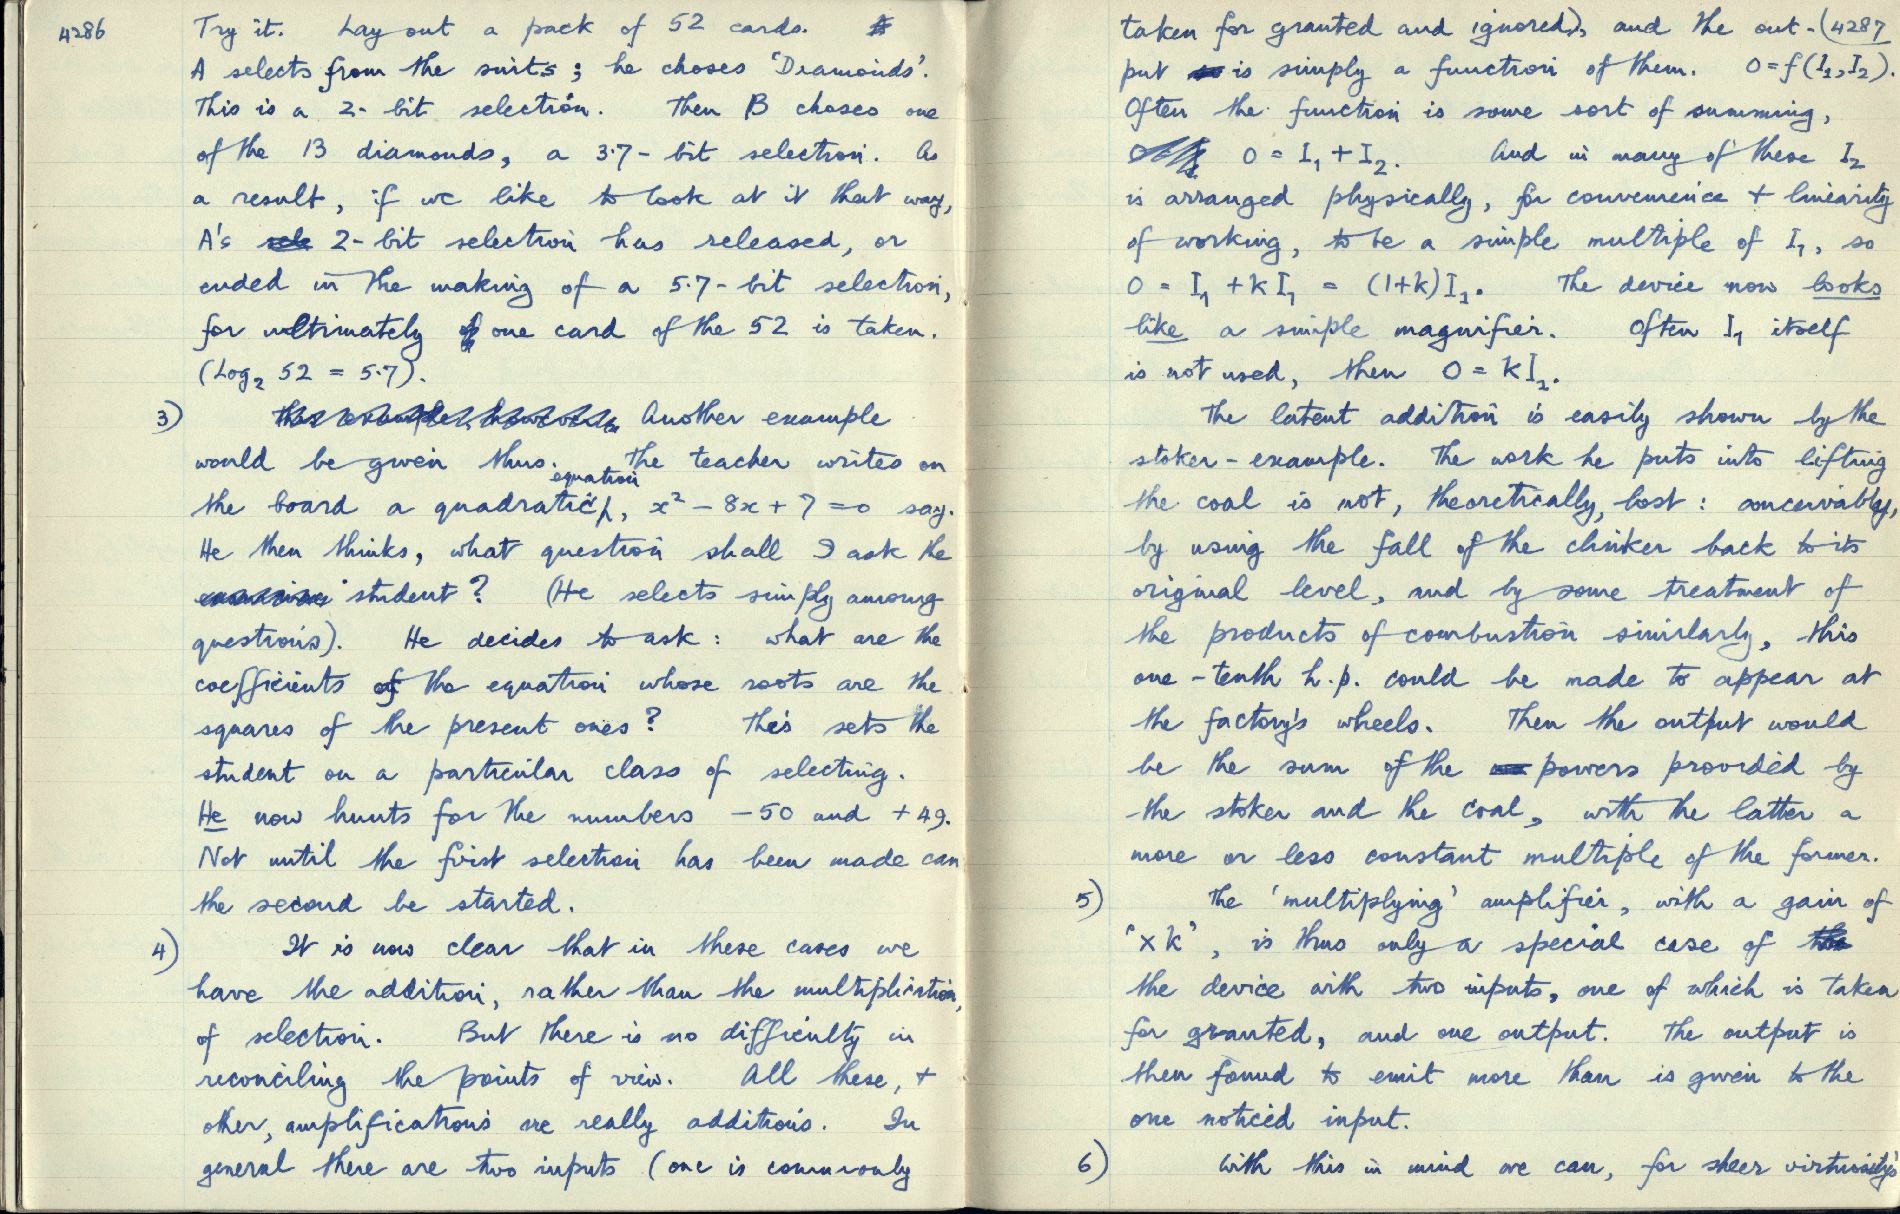 4286
Try it. Lay out a pack of 52 cards.
A selects from the suits; he choses 'Diamonds'.
This is a 2-bit selection. Then B choses one
of the 13 diamonds, a 3·7-bit selection. As
a result, if we like to look at it that way,
A's 2-bit selection has released, or
ended in the making of a 5·7-bit selection,
for ultimately one card of the 52 is taken.
(Log₂ 52 = 5·7).
3) Another example
would be given thus. The teacher writes on
the board a quadratic equation, x² - 8x + 7 = 0 say.
He then thinks, what question shall I ask the
student? (He selects simply among
questions). He decides to ask: what are the
coefficients of the equation whose roots are the
squares of the present ones? This sets the
student on a particular class of selecting.
He now hunts for the numbers -50 and +49.
Not until the first selection has been made can
the second be started.
4) It is now clear that in these cases we
have the addition, rather than the multiplication,
of selection. But there is no difficulty in
reconciling the points of view. All these, +
other, amplifications are really additions. In
general there are two inputs (one is commonly
taken for granted and ignored), and the out- (4287
put is simply a function of them. O = f(I₁, I₂).
Often the function is some sort of summing,
O = I₁ + I₂. And in many of these I₂
is arranged physically, for convenience + linearity
of working, to be a simple multiple of I₁, so
O = I₁ + kI₁ = (1+k)I₁. The device now looks
like a simple magnifier. Often I₁ itself
is not used, then O = kI₁.
The latent addition is easily shown by the
stoker-example. The work he puts into lifting
the coal is not, theoretically, lost: conceivably,
by using the fall of the clinker back to its
original level, and by some treatment of
the products of combustion similarly, this
one-tenth h.p. could be made to appear at
the factory's wheels. Then the output would
be the sum of the powers provided by
the stoker and the coal, with the latter a
more or less constant multiple of the former.
5) The 'multiplying' amplifier, with a gain of
'x k', is thus only a special case of
the device with two inputs, one of which is taken
for granted, and one output. The output is
then found to emit more than is given to the
one noticed input.
6) With this in mind we can, for sheer